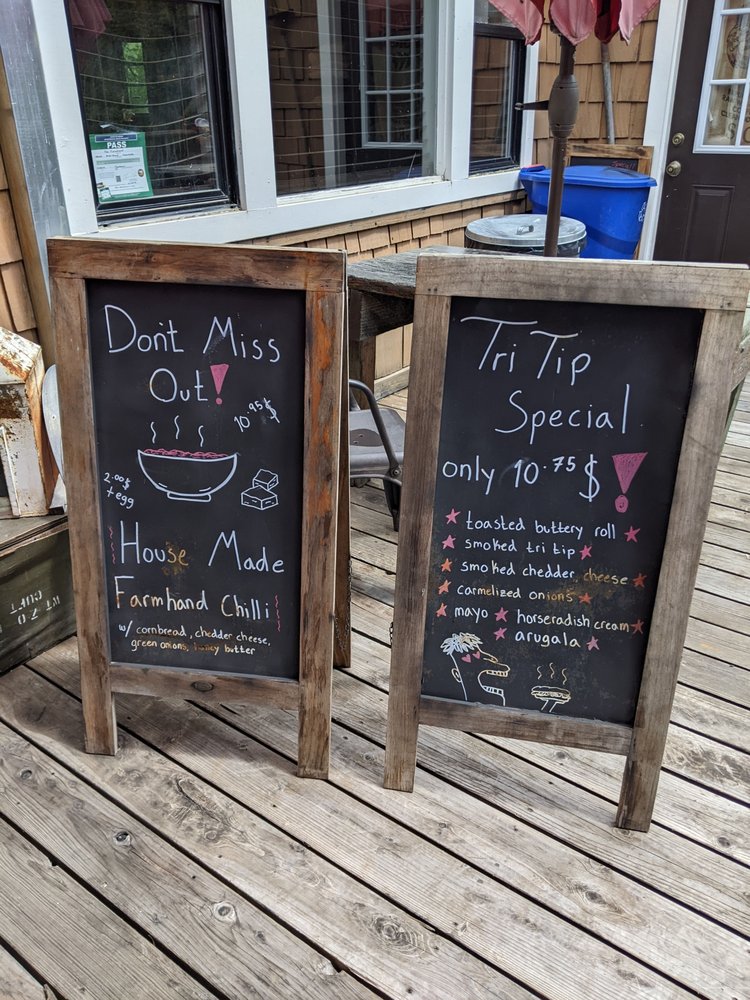 PASS
Don't Miss
Out!
10.95$
2.00$
+ egg
House Made
Farmhand Chilli
w/ cornbread, chedder cheese,
green onions, honey butter
Tri Tip
Special
only 10.75$!
toasted buttery roll
smoked tri tip
smoked chedder cheese
carmelized onions
mayo horseradish cream
arugala